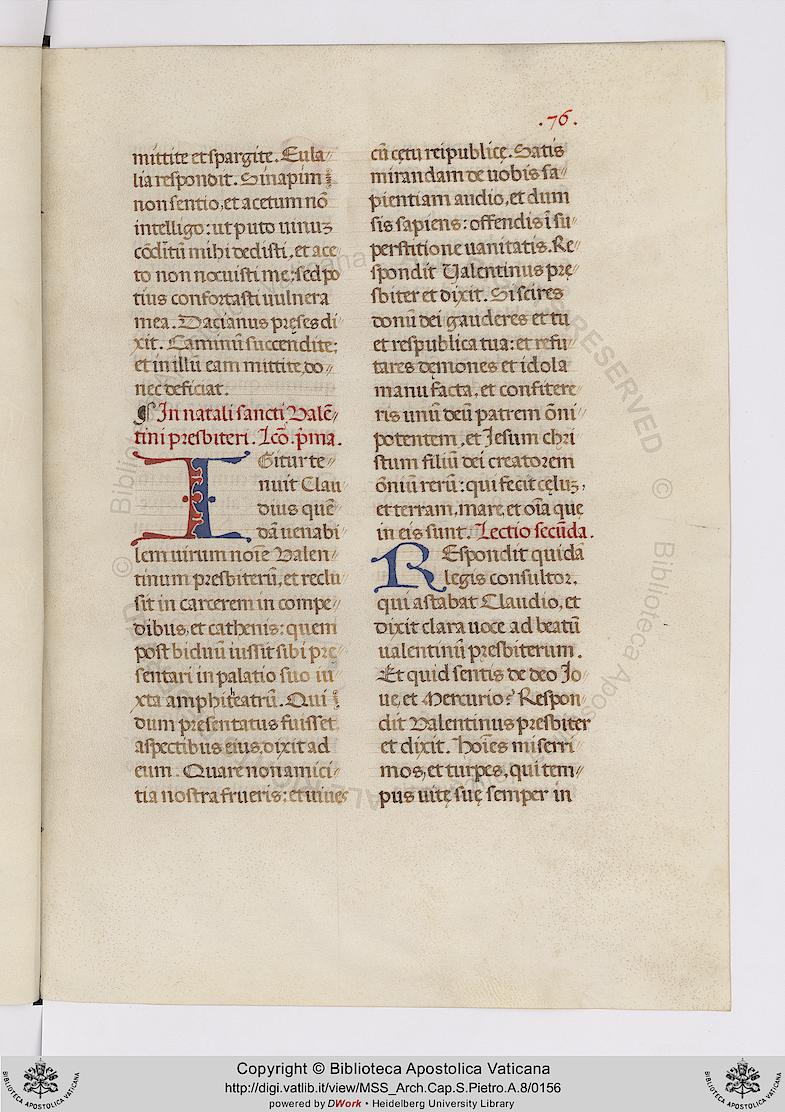 .76.
mittite et spargite. Eula⸗
lia respondit. Sinapim
non sentio, et acetum nō
intelligo: ut puto uinuꝫ
cōditū mihi dedisti, et ace
to non nocuisti me; sed po
tius confortasti uulnera
mea. Dacianus preses di
xit. Caminū succendite;
et in illū eam mittite, do⸗
nec deficiat.
¶ In natali sancti Valē⸗
tini presbiteri. Lcō. p̄ma.
IGitur te⸗
nuit Clau
dius quē
dā uenabi
lem uirum noīe Valen⸗
tinum presbiterū, et reclu
sit in carcerem in compe⸗
dibus, et cathenis: quem
post biduū iussit sibi pre
sentari in palatio suo iu⸗
xta amphiteatrū. Qui
dum presentatus fuisset
aspectibus eius, dixit ad
eum. Quare non amici⸗
tia nostra frueris: et uiues
cū cętu reipublicę. Satis
mirandam de uobis sa⸗
pientiam audio, et dum
sis sapiens: offendis ī su⸗
perstitione uanitatis. Re⸗
spondit Ualentinus prę⸗
sbiter et dixit. Si scires
donū dei gauderes et tu
et respublica tua: et refu⸗
tares demones et idola
manu facta, et confitere⸗
ris unū deū patrem ōni⸗
potentem, et Jesum chri
stum filiū dei creatorem
ōniū rerū: qui fecit cęluꝫ,
et terram, mare, et oīa quę
in eis sunt. Lectio secūda.
REspondit quidā
legis consultor,
qui astabat Claudio, et
dixit clara uoce ad beatū
ualentinū presbiterum.
Et quid sentis de deo Jo⸗
ue, et Mercurio? Respon⸗
dit Valentinus presbiter
et dixit. Hoīes miserri⸗
mos, et turpes, qui tem⸗
pus uitę suę semper in
Copyright © Biblioteca Apostolica Vaticana
http://digi.vatlib.it/view/MSS_Arch.Cap.S.Pietro.A.8/0156
powered by DWork • Heidelberg University Library